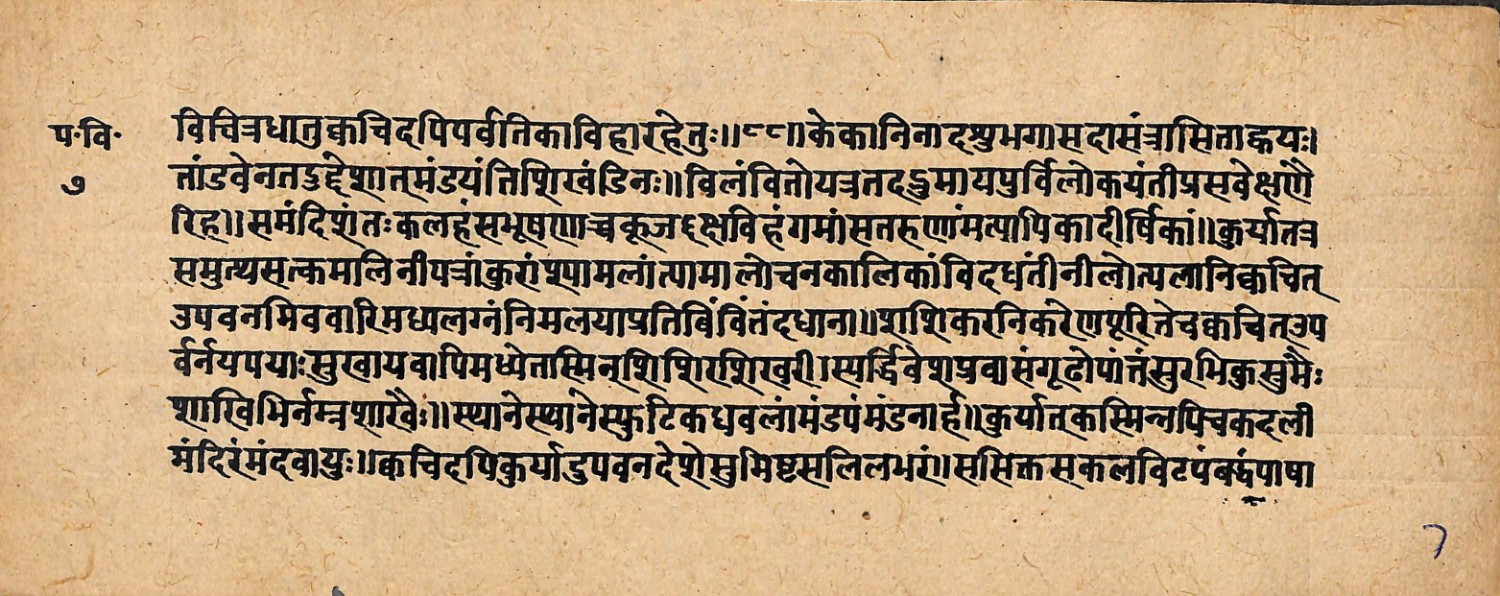 प॰वि॰
७
विचित्रधातुक्वचिदपिपर्वतिकाविहारहेतुः॥ केकानिनादश्रुभगासदासंत्रासिताह्वयः।
तांडवेनतदुद्देशात्मंडयंतिशिखंडिनः॥विलंवितोयत्रतदद्भुमायपुर्विलोकयंतीप्रसवेक्षणै
रिह॥समंदिशंतःकलहंसभूषणाच्चकूजद्दक्षविहंगमांसतरुणांमत्पापिकादीर्षिकां॥कुर्यातत्र
समुत्थसत्कमलिनीपत्रांकुरांश्पामलांत्पामालोचनकालिकांविदधंतीनीलोत्पलानिक्वचित्
उपवनमिववारिमध्यलग्नंनिमलयाप्रतिविंवितंदधाना॥शशिकरनिकरेणपूरितेचक्वचित्उप
र्वर्नयपयाःसुखायवापिमध्येतस्मिन्शिशिरशिखरी।स्पर्द्धिवेशप्रवासंगूढोपांत्तंसुरभिकुसुमैः
शाखिभिर्नम्रशाखैः॥स्थानेस्थानेस्फुटिकधवलांमंडपंमंडनार्ह॥कुर्यात्कस्मिन्नपिचकदली
मंदिरंमंदवायुः॥क्वचिदपिकुर्याडुपवनदेशेसुमिष्टसलिलभरं।ससिक्तसकलविटपंवद्धंपाषा
7